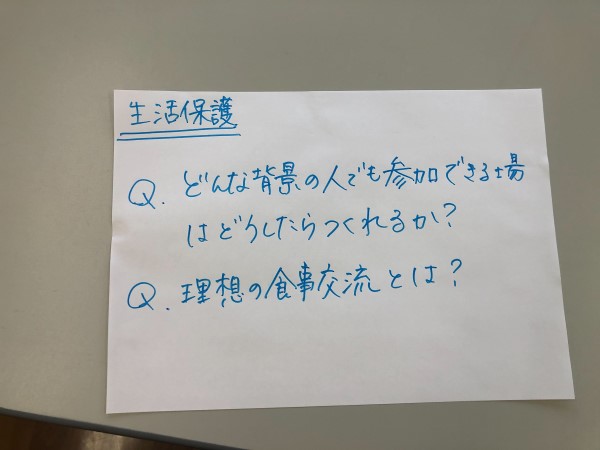 生活保護
Q. どんな背景の人でも参加できる場
はどうしたらつくれるか?
Q. 理想の食事交流とは?